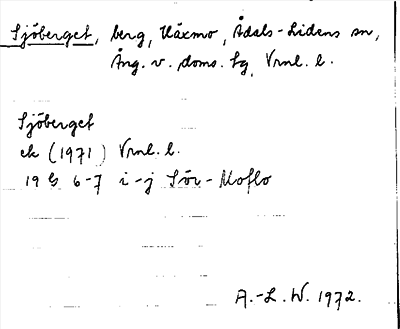 Sjöberget, berg, Häxmo, Ådals-Lidens sn,
Ång. v. doms. tg, Vrnl. l.
Sjöberget
ek (1971) Vrnl. l.
19 G 6-7 i-j Sör-Moflo
A.-L. W. 1972.